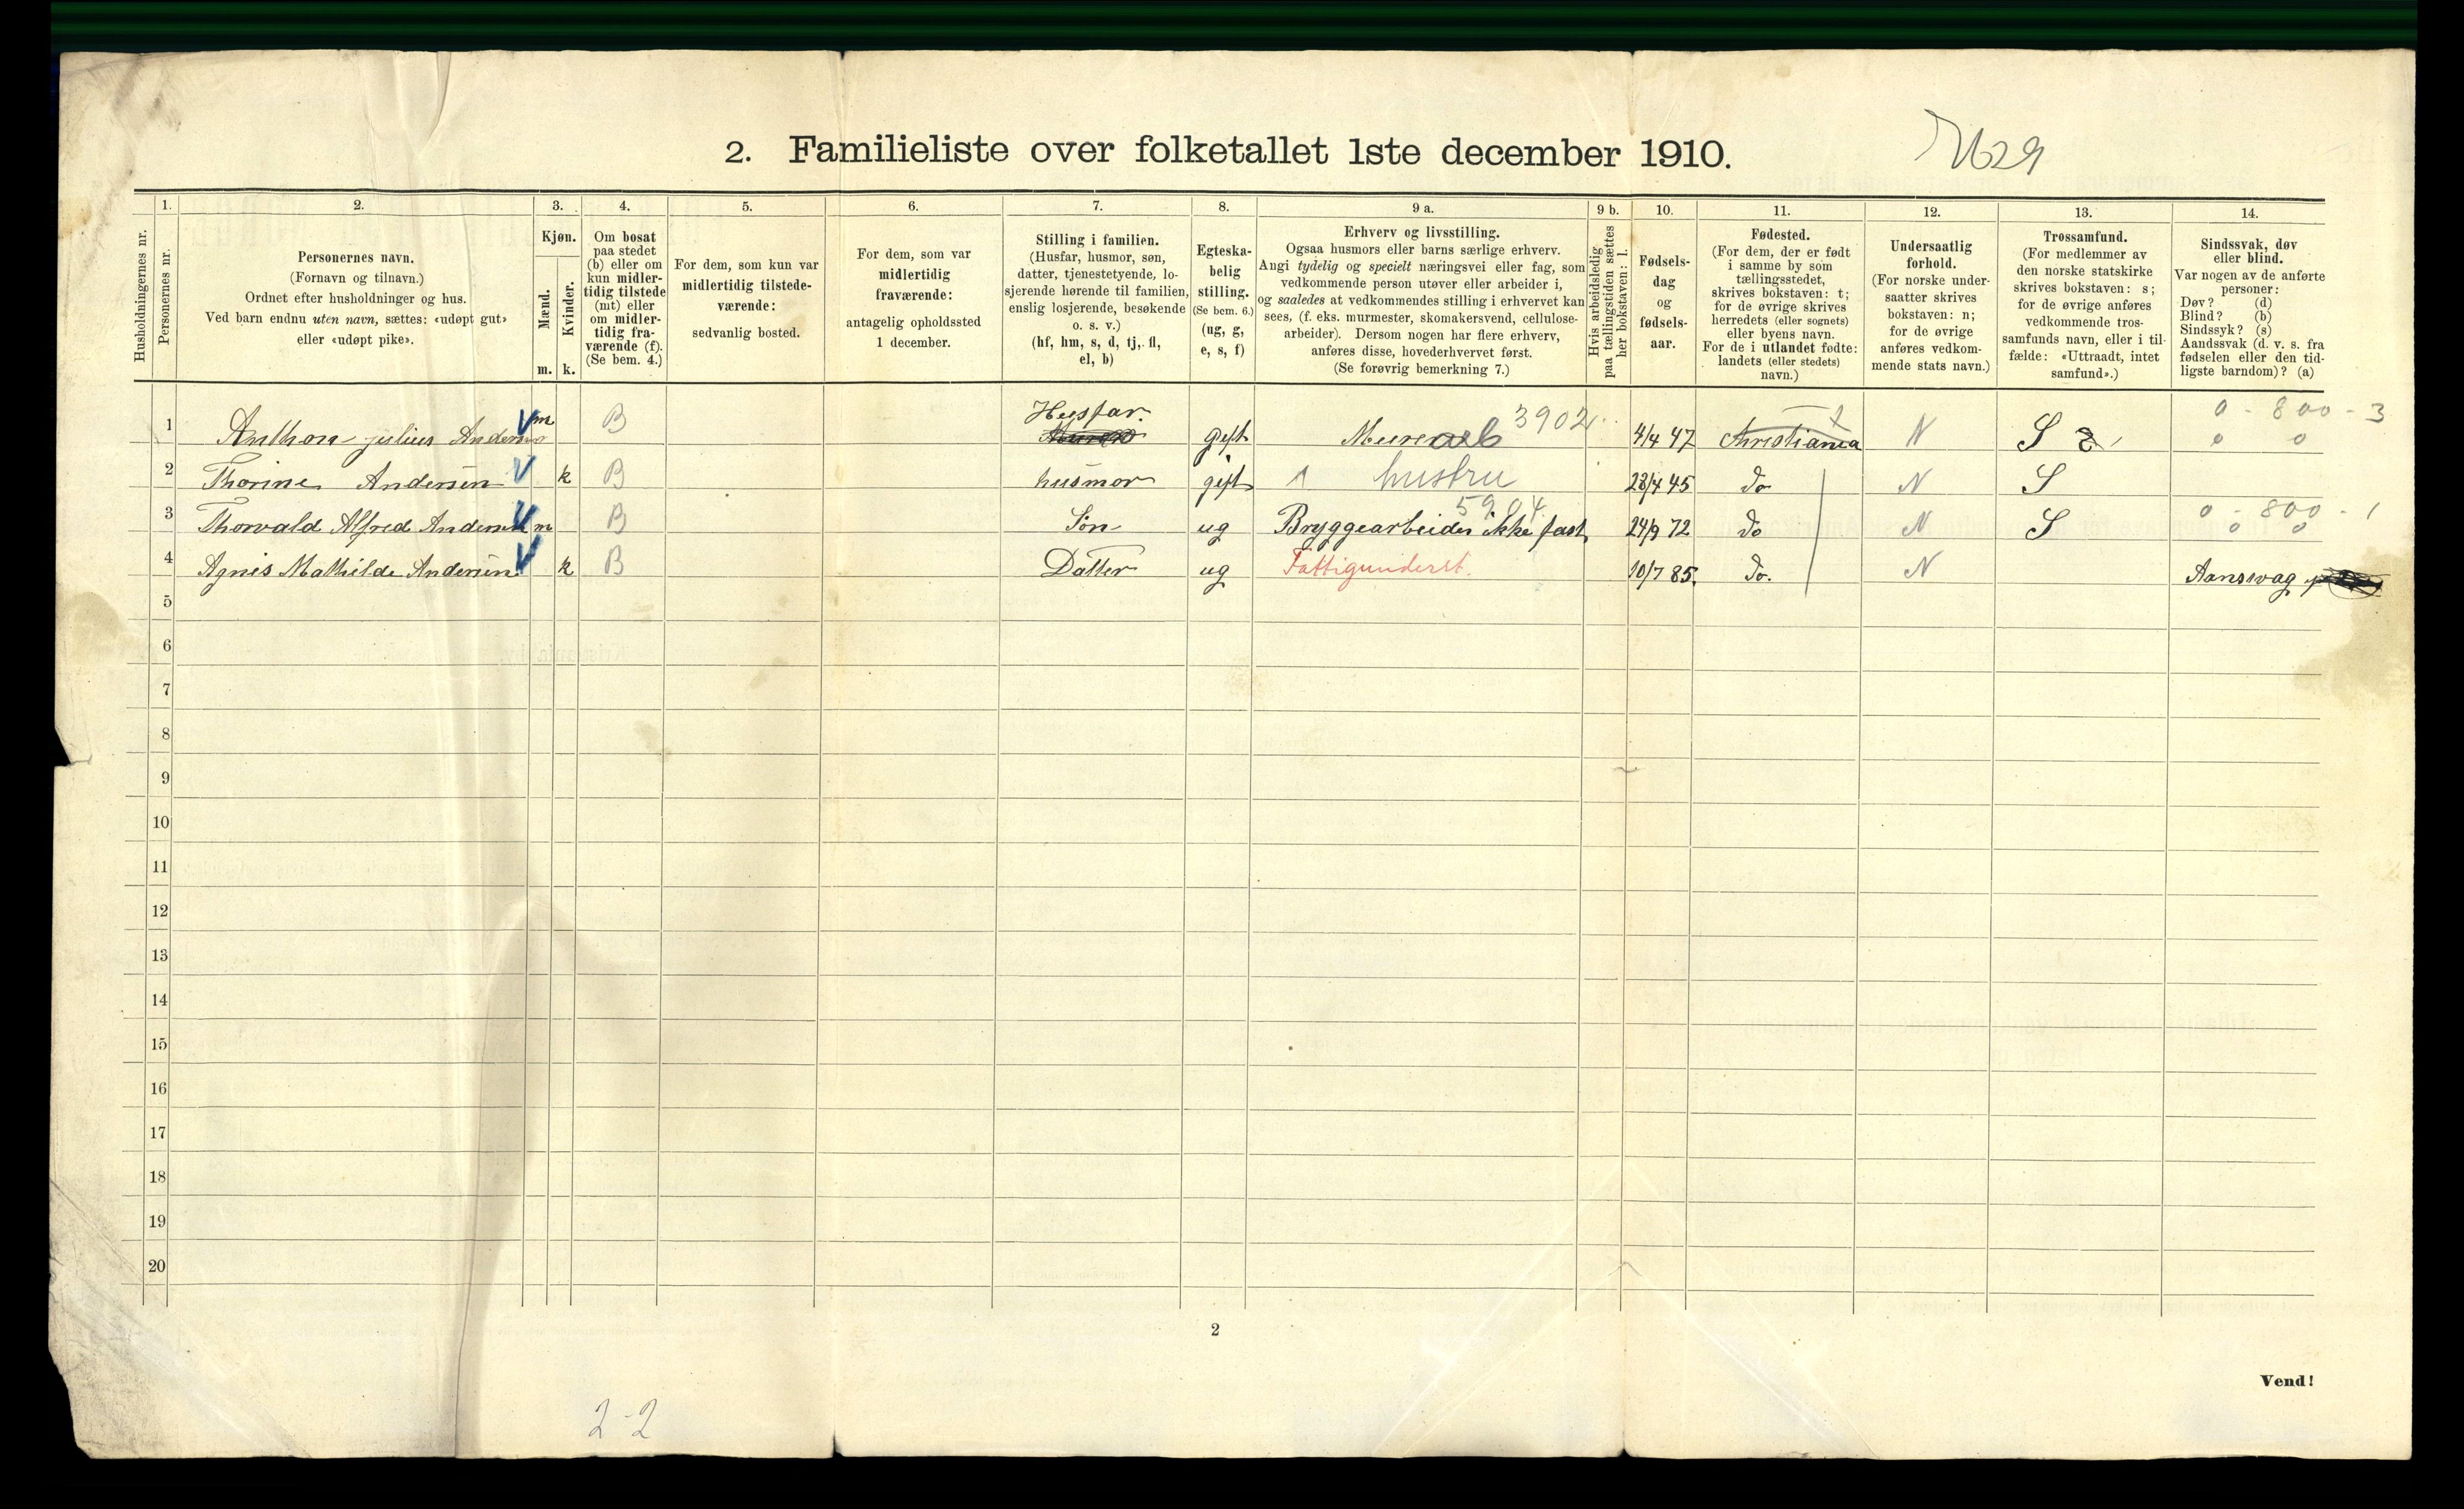 2. Familieliste over folketallet 1ste december 1910.
7629
Husholdningernes nr.
1.
Personernes nr.
2.
Personernes navn.
(Fornavn og tilnavn.)
Ordnet efter husholdninger og hus.
Ved barn endnu uten navn, sættes: «udøpt gut»
eller «udøpt pike».
3.
Kjøn.
Mænd.
Kvinder.
m. k.
4.
Om bosat
paa stedet
(b) eller om
kun midler-
tidig tilstede
(mt) eller
om midler-
tidig fra-
værende (f).
(Se bem. 4.)
5.
For dem, som kun var
midlertidig tilstede-
værende:
sedvanlig bosted.
6.
For dem, som var
midlertidig
fraværende:
antagelig opholdssted
1 december.
7.
Stilling i familien.
(Husfar, husmor, søn,
datter, tjenestetyende, lo-
sjerende hørende til familien,
enslig losjerende, besøkende
o. s. v.)
(hf, hm, s, d, tj, fl,
el, b)
8.
Egteska-
belig
stilling.
(Se bem. 6.)
(ug, g,
e, s, f)
9 a.
Erhverv og livsstilling.
Ogsaa husmors eller barns særlige erhverv.
Angi tydelig og specielt næringsvei eller fag, som
vedkommende person utøver eller arbeider i,
og saaledes at vedkommendes stilling i erhvervet kan
sees, (f. eks. murmester, skomakersvend, cellulose-
arbeider). Dersom nogen har flere erhverv,
anføres disse, hovederhvervet først.
(Se forøvrig bemerkning 7.)
9 b.
Hvis arbeidsledig
paa tællingstiden sættes
her bokstaven: l.
10.
Fødsels-
dag
og
fødsels-
aar.
11.
Fødested.
(For dem, der er født
i samme by som
tællingsstedet,
skrives bokstaven: t;
for de øvrige skrives
herredets (eller sognets)
eller byens navn.
For de i utlandet fødte:
landets (eller stedets)
navn.)
12.
Undersaatlig
forhold.
(For norske under-
saatter skrives
bokstaven: n;
for de øvrige
anføres vedkom-
mende stats navn.)
13.
Trossamfund.
(For medlemmer av
den norske statskirke
skrives bokstaven: s;
for de øvrige anføres
vedkommende tros-
samfunds navn, eller i til-
fælde: «Uttraadt, intet
samfund».)
14.
Sindssvak, døv
eller blind.
Var nogen av de anførte
personer:
Døv? (d)
Blind? (b)
Sindssyk? (s)
Aandssvak (d. v. s. fra
fødselen eller den tid-
ligste barndom)? (a)
Husfar. 3902 t 0 - 800 - 3
1 Anthon julius Andersen m B gift Murerarb 4/4 47 Christiania N S 0 0
2 Thorine Andersen k B husmor gift 1 hustru 23/4 45 do N S
5904 0 - 800 - 1
3 Thorvald Alfred Andersen m B Sön ug Bryggearbeider ikke fast 24/9 72 do N S 0 0
4 Agnes Mathilde Andersen k B Datter ug Fattigunderst. 10/7 85. do. N Aansvag
5
6
7
8
9
10
11
12
13
14
15
16
17
18
19
20
2
Vend!
2-2